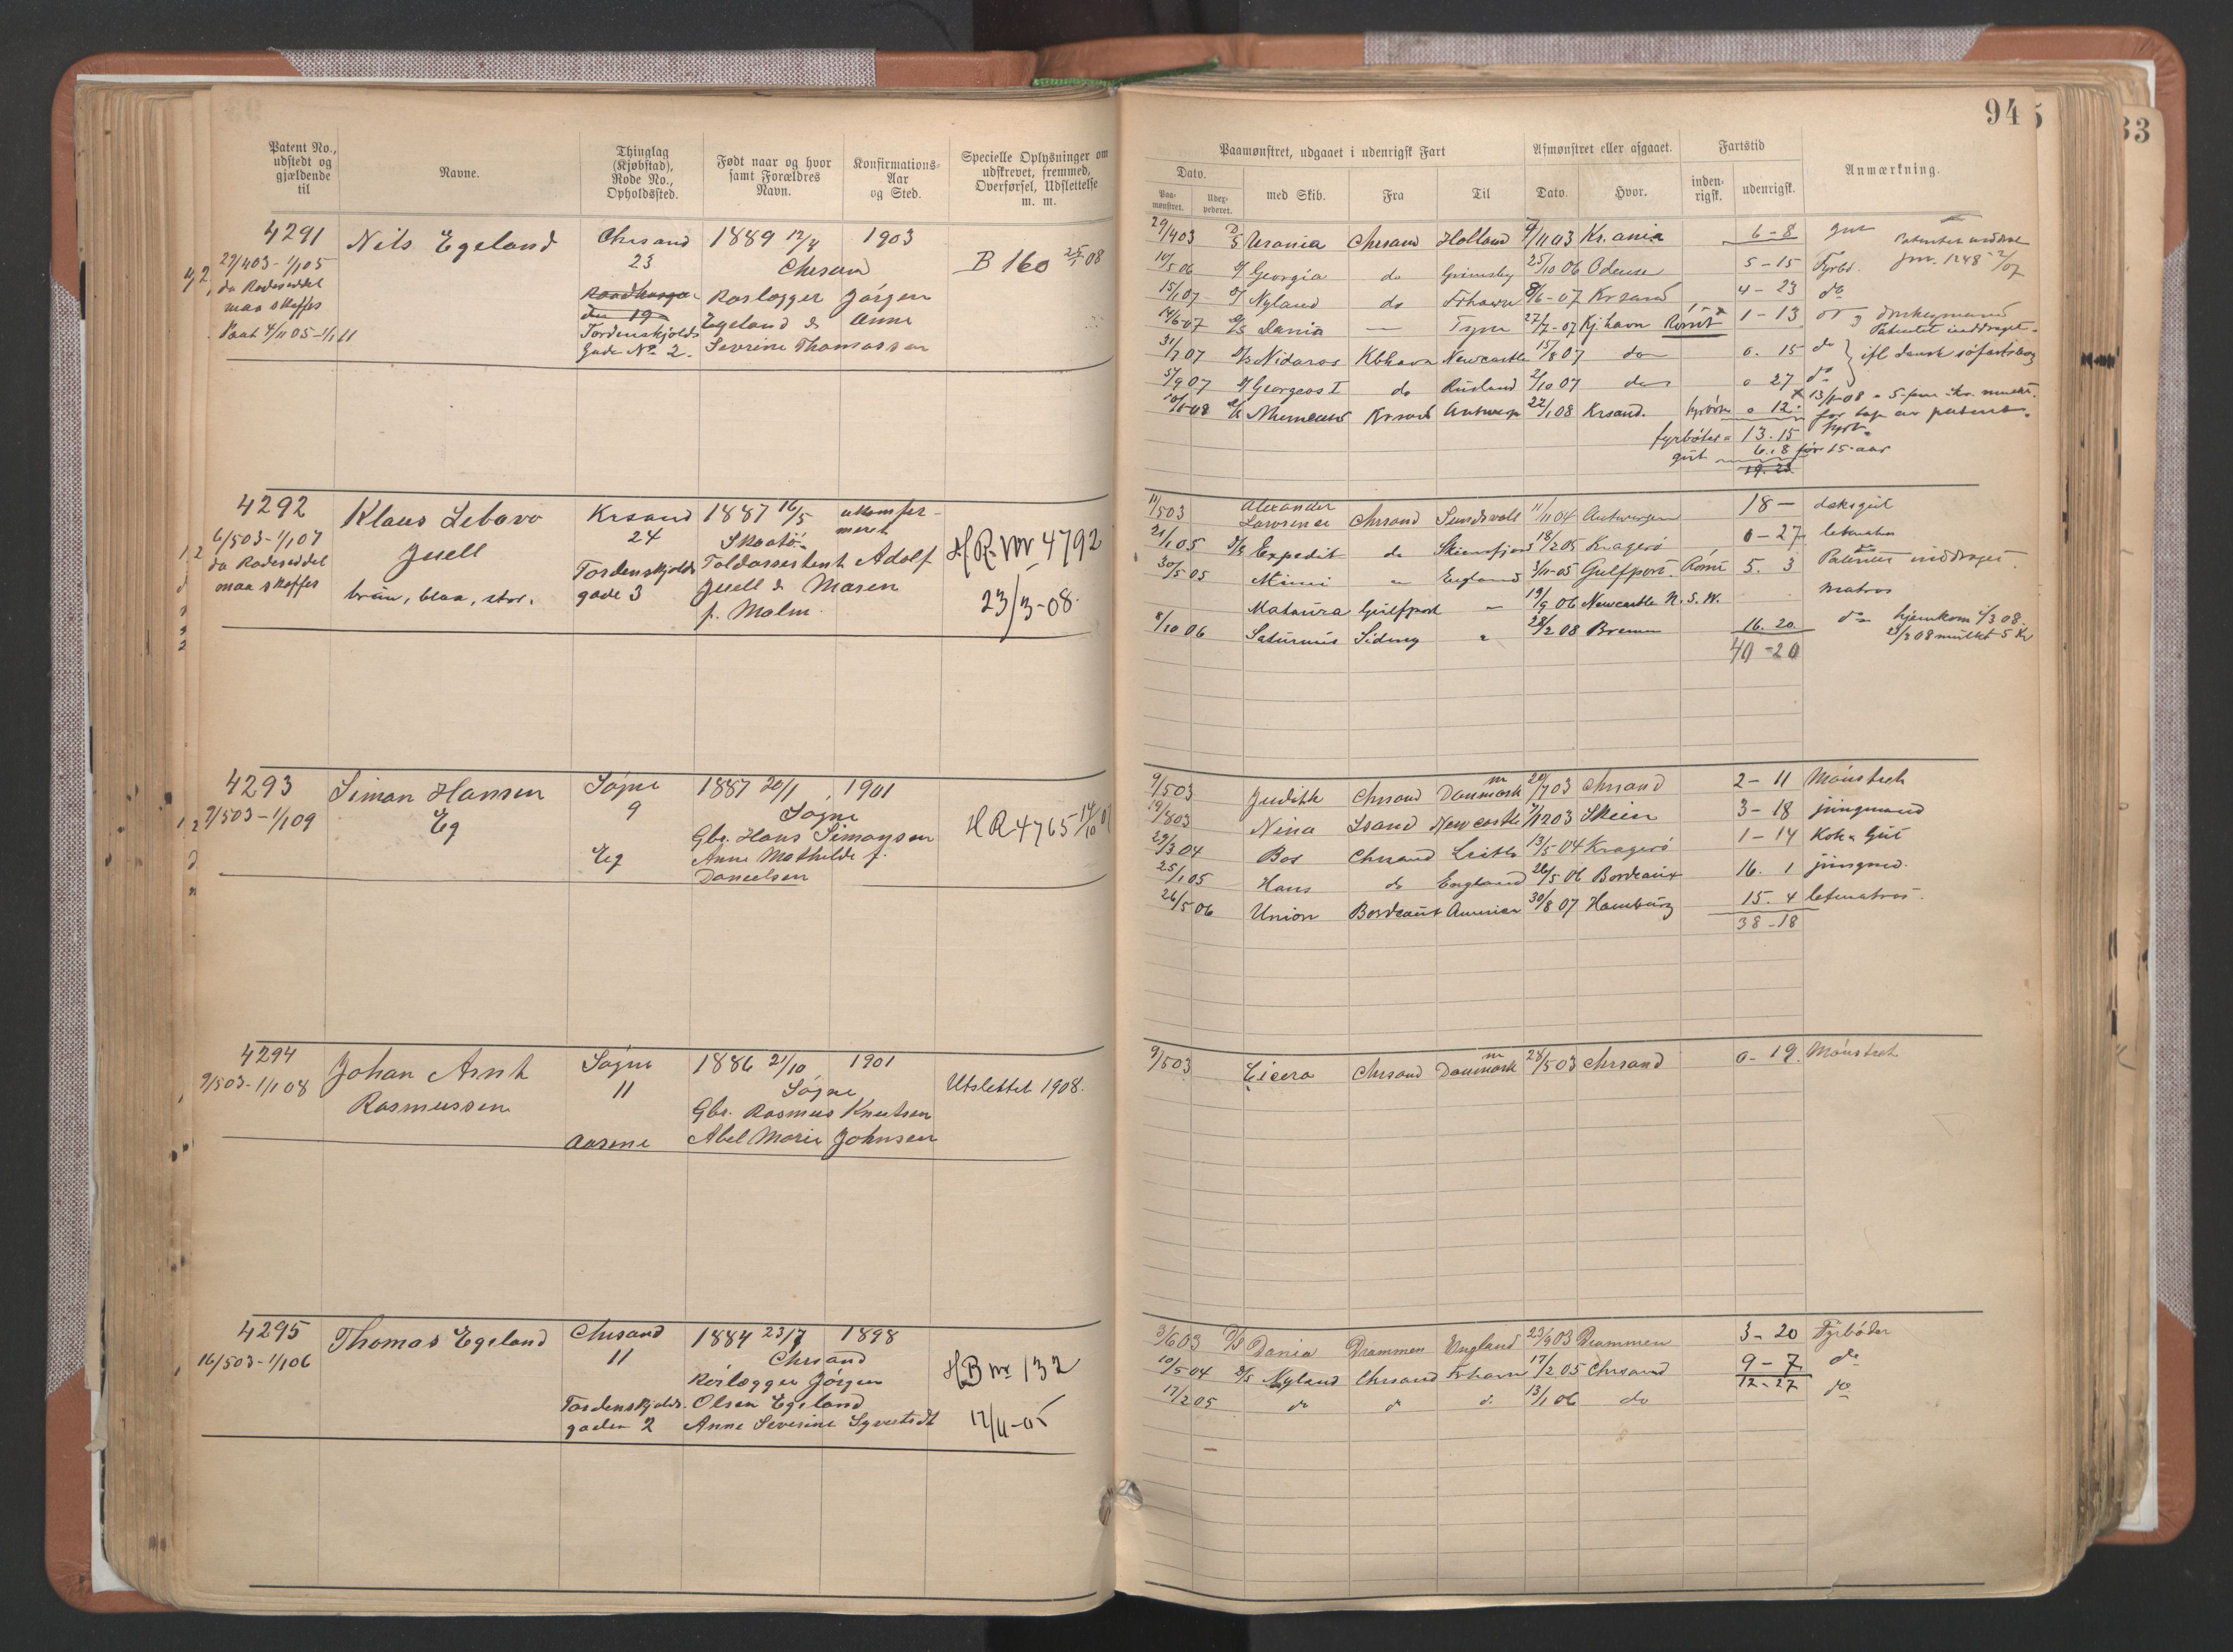 94
Patent No., udstedt og gjældende til
Navne.
Thinglag (Kjøbstad), Rode No., Opholdssted.
Født naar og hvor samt Forældres Navn.
Konfirmations-Aar og Sted.
Specielle Oplysninger om udskrevet, fremmed, Overførsel, Udslettelse m. m.
Paamønstret, udgaaet i udenrigsk Fart
Afmønstret eller afgaaet.
Fartstid
Anmærkning.
Dato.
Paa-mønstret.
Udex-pederet.
med Skib.
Fra
Til
Dato.
Hvor.
inden-rigsk.
udenrigsk.
4291
29/4 03 - 1/1 05
da Rodeseddel
maa skaffes
Paat 4/11 05 - 1/1 11
Nils Egeland
Chrsand
23
Raadhusga-
den 19
Tordenskjolds
Gade No 2.
1889 12/4 1903
Chrsan
Rørlægger Jørgen
Egeland & Anne
Severine Thomassen
B 160 25/1 08
29/4 03 D/S Urania Chrsand Holland 7/11 03 Kr.ania 6-8 gut
14/5 06 D/ Georgia do Grimsby 25/10 06 Odense 5-15 Fyrb.
15/1 07 D/ Nyland do Frhavn 8/6-07 Krsand 4-23 do
14/6 07 D/S Dania — Tyne 27/7-07 Kj.havn Rømt 1-13
Patentet inddraget
31/7 07 D/S Nidaros Kbhavn Newcastle 15/8 07 do 0. 15 do
ifl dansk søfartsbog
5/9 07 D/ Georgeos I do Rusland 2/10 07 do 0 27 do
Krsand Antwerp 22/1 08 Krsand. fyrbøt. 0 12.
for tap av patent.
fyrbøter 13.15
gut 6.8 før 15 aar
19.23
4292
6/5 03 - 1/1 07
da Rodeseddel
maa skaffes
Klaus Lebovo
Juell
brun, blaa, stor.
Krsand
24
Tordenskjolds
gade 3
1887 16/5 ukonfir-
meret
Skaatø
Toldassistent Adolf
Juell & Maren
f. Malm
HR. nr 4792
23/3-08.
11/5 03 Alexander
Lawrence Chrsand Sundsvall 11/11 04 Antwerpen 18 — daksgut
21/1 05 D/S Expedit do Skiensfjord 18/2 05 Kragerø 0-27 letmatros
30/5 05 Mimi " England 3/11-05 Gulfport. Rømt 5. 3 Patentet inddraget
Mataura Gulfport — 19/9 06 Newcastle N.S.W. matros
8/10 06 Saturnus Sidney " 28/2 08 Bremen 16. 20. do hjemkom 4/3 08.
mulkt 5 Kr
40-20
4293
9/5 03 - 1/1 09
Simon Hansen
Eg
Søgne
9
Eg
1887 20/1 1901
Søgne
Gbr. Hans Simonsen
Anne Mathilde f.
Danielsen
HR 4765 14/10 07
9/5 03 Judith Chrsand Danmark 20/7 03 Chrsand 2-11 Mønstret
19/8 03 Nina Lsand Newcastle 7/12 03 Skien 3-18 jungmand
29/3 04 Bos Chrsand Leith 13/5 04 Kragerø 1-14 Kok & Gut
25/1 05 Hans do England 26/5 06 Bordeaux 16. 1 jungmd.
26/5 06 Union Bordeaux Amerika 30/8 07 Hamburg 15. 4 letmatros.
38-18
4294
9/5 03 - 1/1 08
Johan Arnt
Rasmussen
Søgne
11
Aasene
1886 21/10 1901
Søgne
Gbr. Rasmus Knutsen
Abel Marie Johnsen
Utslettet 1908.
9/5 03 Cicero Chrsand Danmark 28/5 03 Chrsand 0-19. Mønstret
4295
16/5 03 - 1/1 06
Thomas Egeland
Chrsand
11
Tordenskjolds.
gaden 2
1884 23/7 1898
Chrsand
Rørlægger Jørgen
Olsen Egeland
Anne Severine Syvertsdt
HB nr 132
17/11-05
3/6 03 D/S Dania Drammen England 23/9 03 Drammen 3-20 Fyrbøder
10/5 04 D/S Nyland Chrsand Frhavn 17/2 05 Chrsand 9-7 do
12-27
17/2 05 do do do 13/1 06 do do